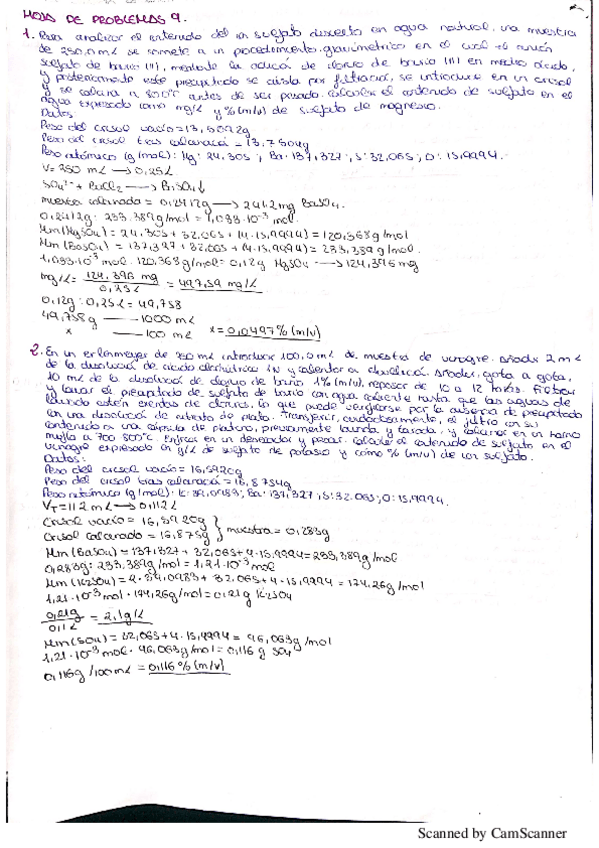 HOJA DE PROBLEMAS 9.
1. Para analizar el contenido del ión sulfato disuelto en agua natural, una muestra
de 250,0 mL se somete a un procedimiento gravimétrico en el cual
sulfato de bario (II), mediante la adición de cloruro de bario (II) en medio ácido,
y posteriormente este precipitado se aísla por filtración, se introduce en un crisol
y se calcina a 800°C antes de ser pesado. Calcular el contenido de sulfato en el
agua expresado como mg/L y % (m/v) de sulfato de magnesio.
Datos:
Peso del crisol vacío = 13,5092g
Peso del crisol tras calcinación = 13,7504g
Peso atómico (g/mol): Mg: 24,305; Ba: 137,327; S: 32,065; O: 15,9994.
V = 250 mL → 0,25L
SO4²⁻ + BaCl2 → BaSO4↓
muestra calcinada = 0,2412g → 241,2mg BaSO4.
0,2412g : 233,389g/mol = 1,033·10⁻³ mol.
Mm(MgSO4) = 24,305 + 32,065 + (4·15,9994) = 120,368g/mol
Mm(BaSO4) = 137,327 + 32,065 + (4·15,9994) = 233,389g/mol.
1,033·10⁻³ mol · 120,368g/mol = 0,12g MgSO4 → 124,396mg
mg/L = 124,396 mg / 0,25L = 497,59 mg/L
0,12g : 0,25L = 49,758
49,758g — 1000 mL
x — 100 mL x = 0,0497% (m/v)
2. En un erlenmeyer de 250 mL introducir 100,0 mL de muestra de vinagre. Añadir 2 mL
de la disolución de ácido clorhídrico 1N y calentar a ebullición. Añadir, gota a gota,
10 mL de la disolución de cloruro de bario 1% (m/v), reposar de 10 a 12 horas. Filtrar
y lavar el precipitado de sulfato de bario con agua caliente hasta que las aguas de
lavado estén exentas de cloruros, lo que puede verificarse por la ausencia de precipitado
con una disolución de nitrato de plata. Transferir, cuidadosamente, el filtro con su
contenido a una cápsula de platino, previamente lavada y tarada, y calcinar en un horno
mufla a 700 800°C. Enfriar en un desecador y pesar. Calcule el contenido de sulfato en el
vinagre expresado en g/L de sulfato de potasio y como % (m/v) de ion sulfato.
Datos:
Peso del crisol vacío = 16,5920g
Peso del crisol tras calcinación = 16,8754g
Peso atómico (g/mol): K: 39,0983; Ba: 137,327; S: 32,065; O: 15,9994.
VT = 112 mL → 0,112L
Crisol vacío = 16,5920g
Crisol calcinado = 16,875g } muestra = 0,283g
Mm (BaSO4) = 137,327 + 32,065 + 4·15,9994 = 233,389g/mol
0,283g : 233,389g/mol = 1,21·10⁻³ mol
Mm (K2SO4) = 2·39,0983 + 32,065 + 4·15,9994 = 174,26g/mol
1,21·10⁻³ mol · 174,26g/mol = 0,21g K2SO4
0,21g / 0,1L = 2,1g/L
Mm (SO4) = 32,065 + 4·15,9994 = 96,063g/mol
1,21·10⁻³ mol · 96,063g/mol = 0,116g SO4
0,116g/100mL = 0,116% (m/v)
Scanned by CamScanner